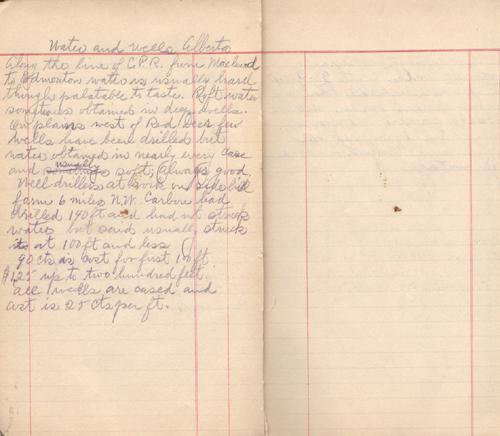 Water and Wells, Alberta
Along the line of C.P.R. from Macleod
to Edmonton water is usually hard
though palatable to taste. Soft water
sometimes obtained in deep wells.
On plains west of Red Deer few
wells have been drilled but
water obtained in nearly every case
and usually soft, always good.
Well drillers at work on
farm 6 miles N.W. Carbon had
drilled 140 ft and had not struck
water but said usually struck
it at 100 ft and less
90 cts is cost for first 100 ft
$1.25 up to two hundred feet.
All wells are cased and
cost is 25 cts per ft.